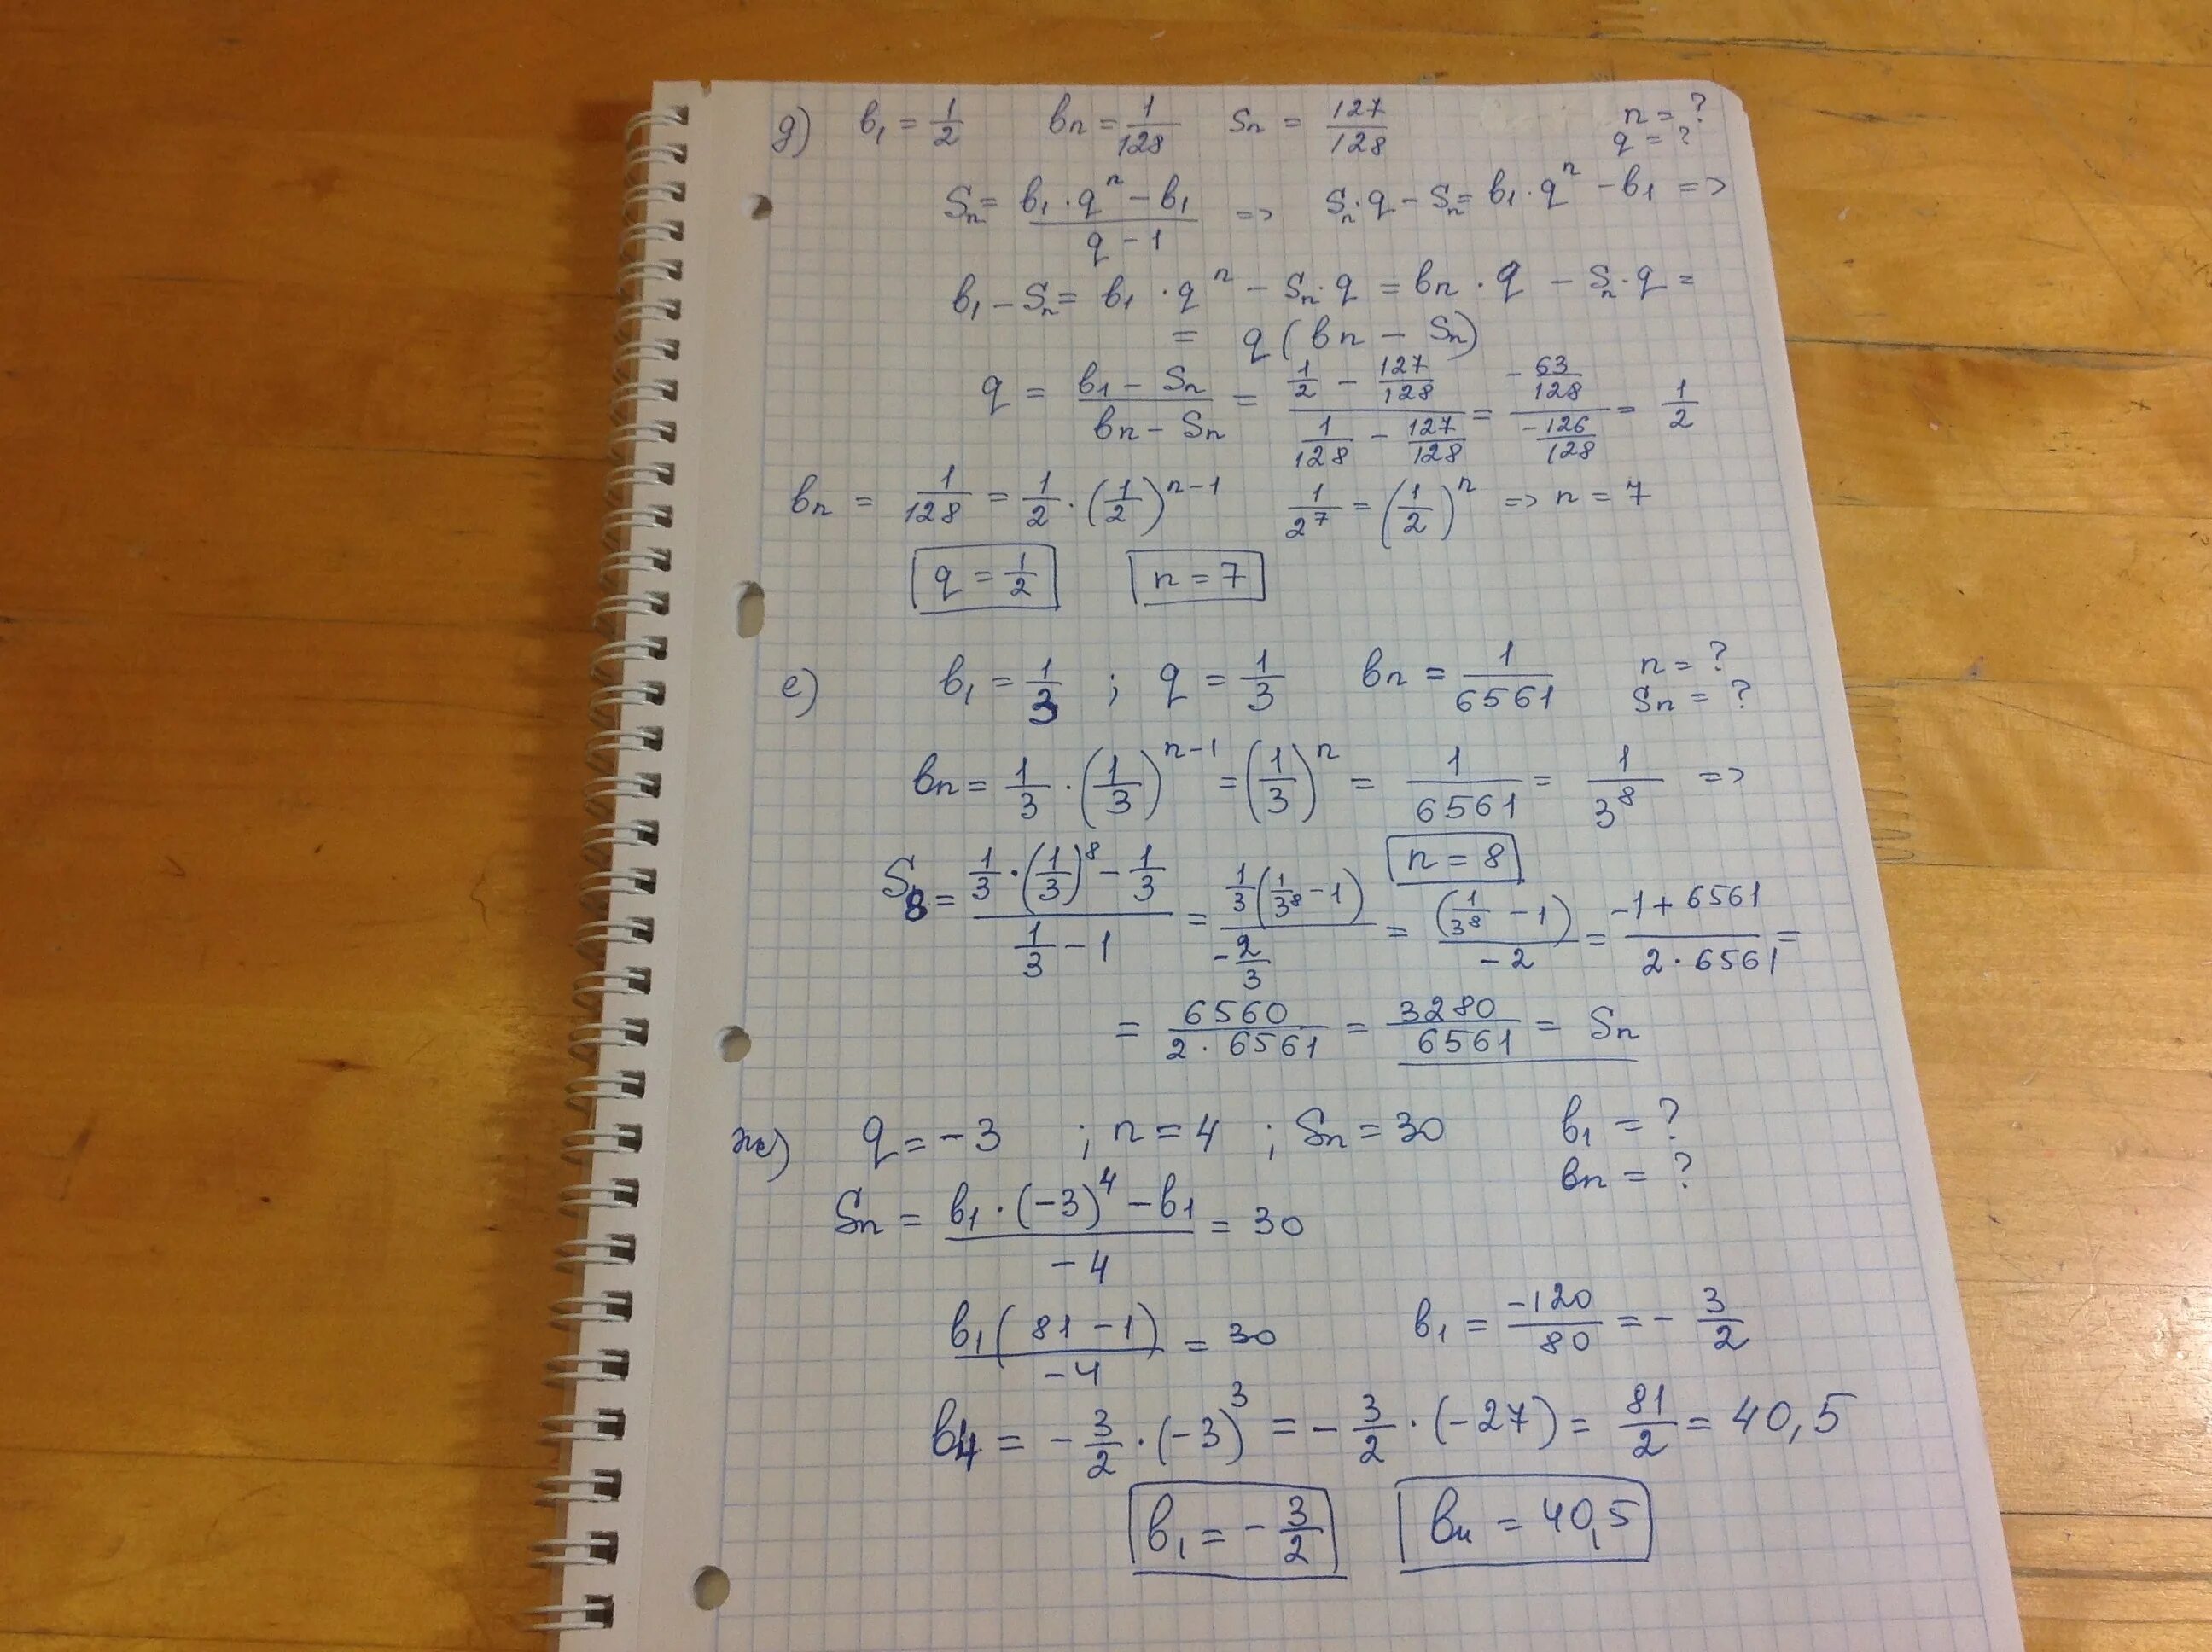 д) b₁ = 1/2 bn = 1/128 Sn = 127/128 n = ?
q = ?
Sn = (b₁ · qⁿ − b₁)/(q − 1) => Sn · q − Sn = b₁ · qⁿ − b₁ =>
b₁ − Sn = b₁ · qⁿ − Sn · q = bn · q − Sn · q =
= q(bn − Sn)
q = (b₁ − Sn)/(bn − Sn) = (1/2 − 127/128)/(1/128 − 127/128) = (−63/128)/(−126/128) = 1/2
bn = 1/128 = 1/2 · (1/2)ⁿ⁻¹ 1/2⁷ = (1/2)ⁿ => n = 7
q = 1/2 n = 7
е) b₁ = 1/3 ; q = 1/3 bn = 1/6561 n = ?
Sn = ?
bn = 1/3 · (1/3)ⁿ⁻¹ = (1/3)ⁿ = 1/6561 = 1/3⁸ =>
n = 8
S₈ = (1/3 · (1/3)⁸ − 1/3)/(1/3 − 1) = (1/3(1/3⁸ − 1))/(−2/3) = (1/3⁸ − 1)/(−2) = (−1 + 6561)/(2 · 6561) =
= 6560/(2 · 6561) = 3280/6561 = Sn
ж) q = −3 ; n = 4 ; Sn = 30 b₁ = ?
bn = ?
Sn = (b₁ · (−3)⁴ − b₁)/(−4) = 30
(b₁(81 − 1))/(−4) = 30 b₁ = −120/80 = −3/2
b₄ = −3/2 · (−3)³ = −3/2 · (−27) = 81/2 = 40,5
b₁ = −3/2 bn = 40,5